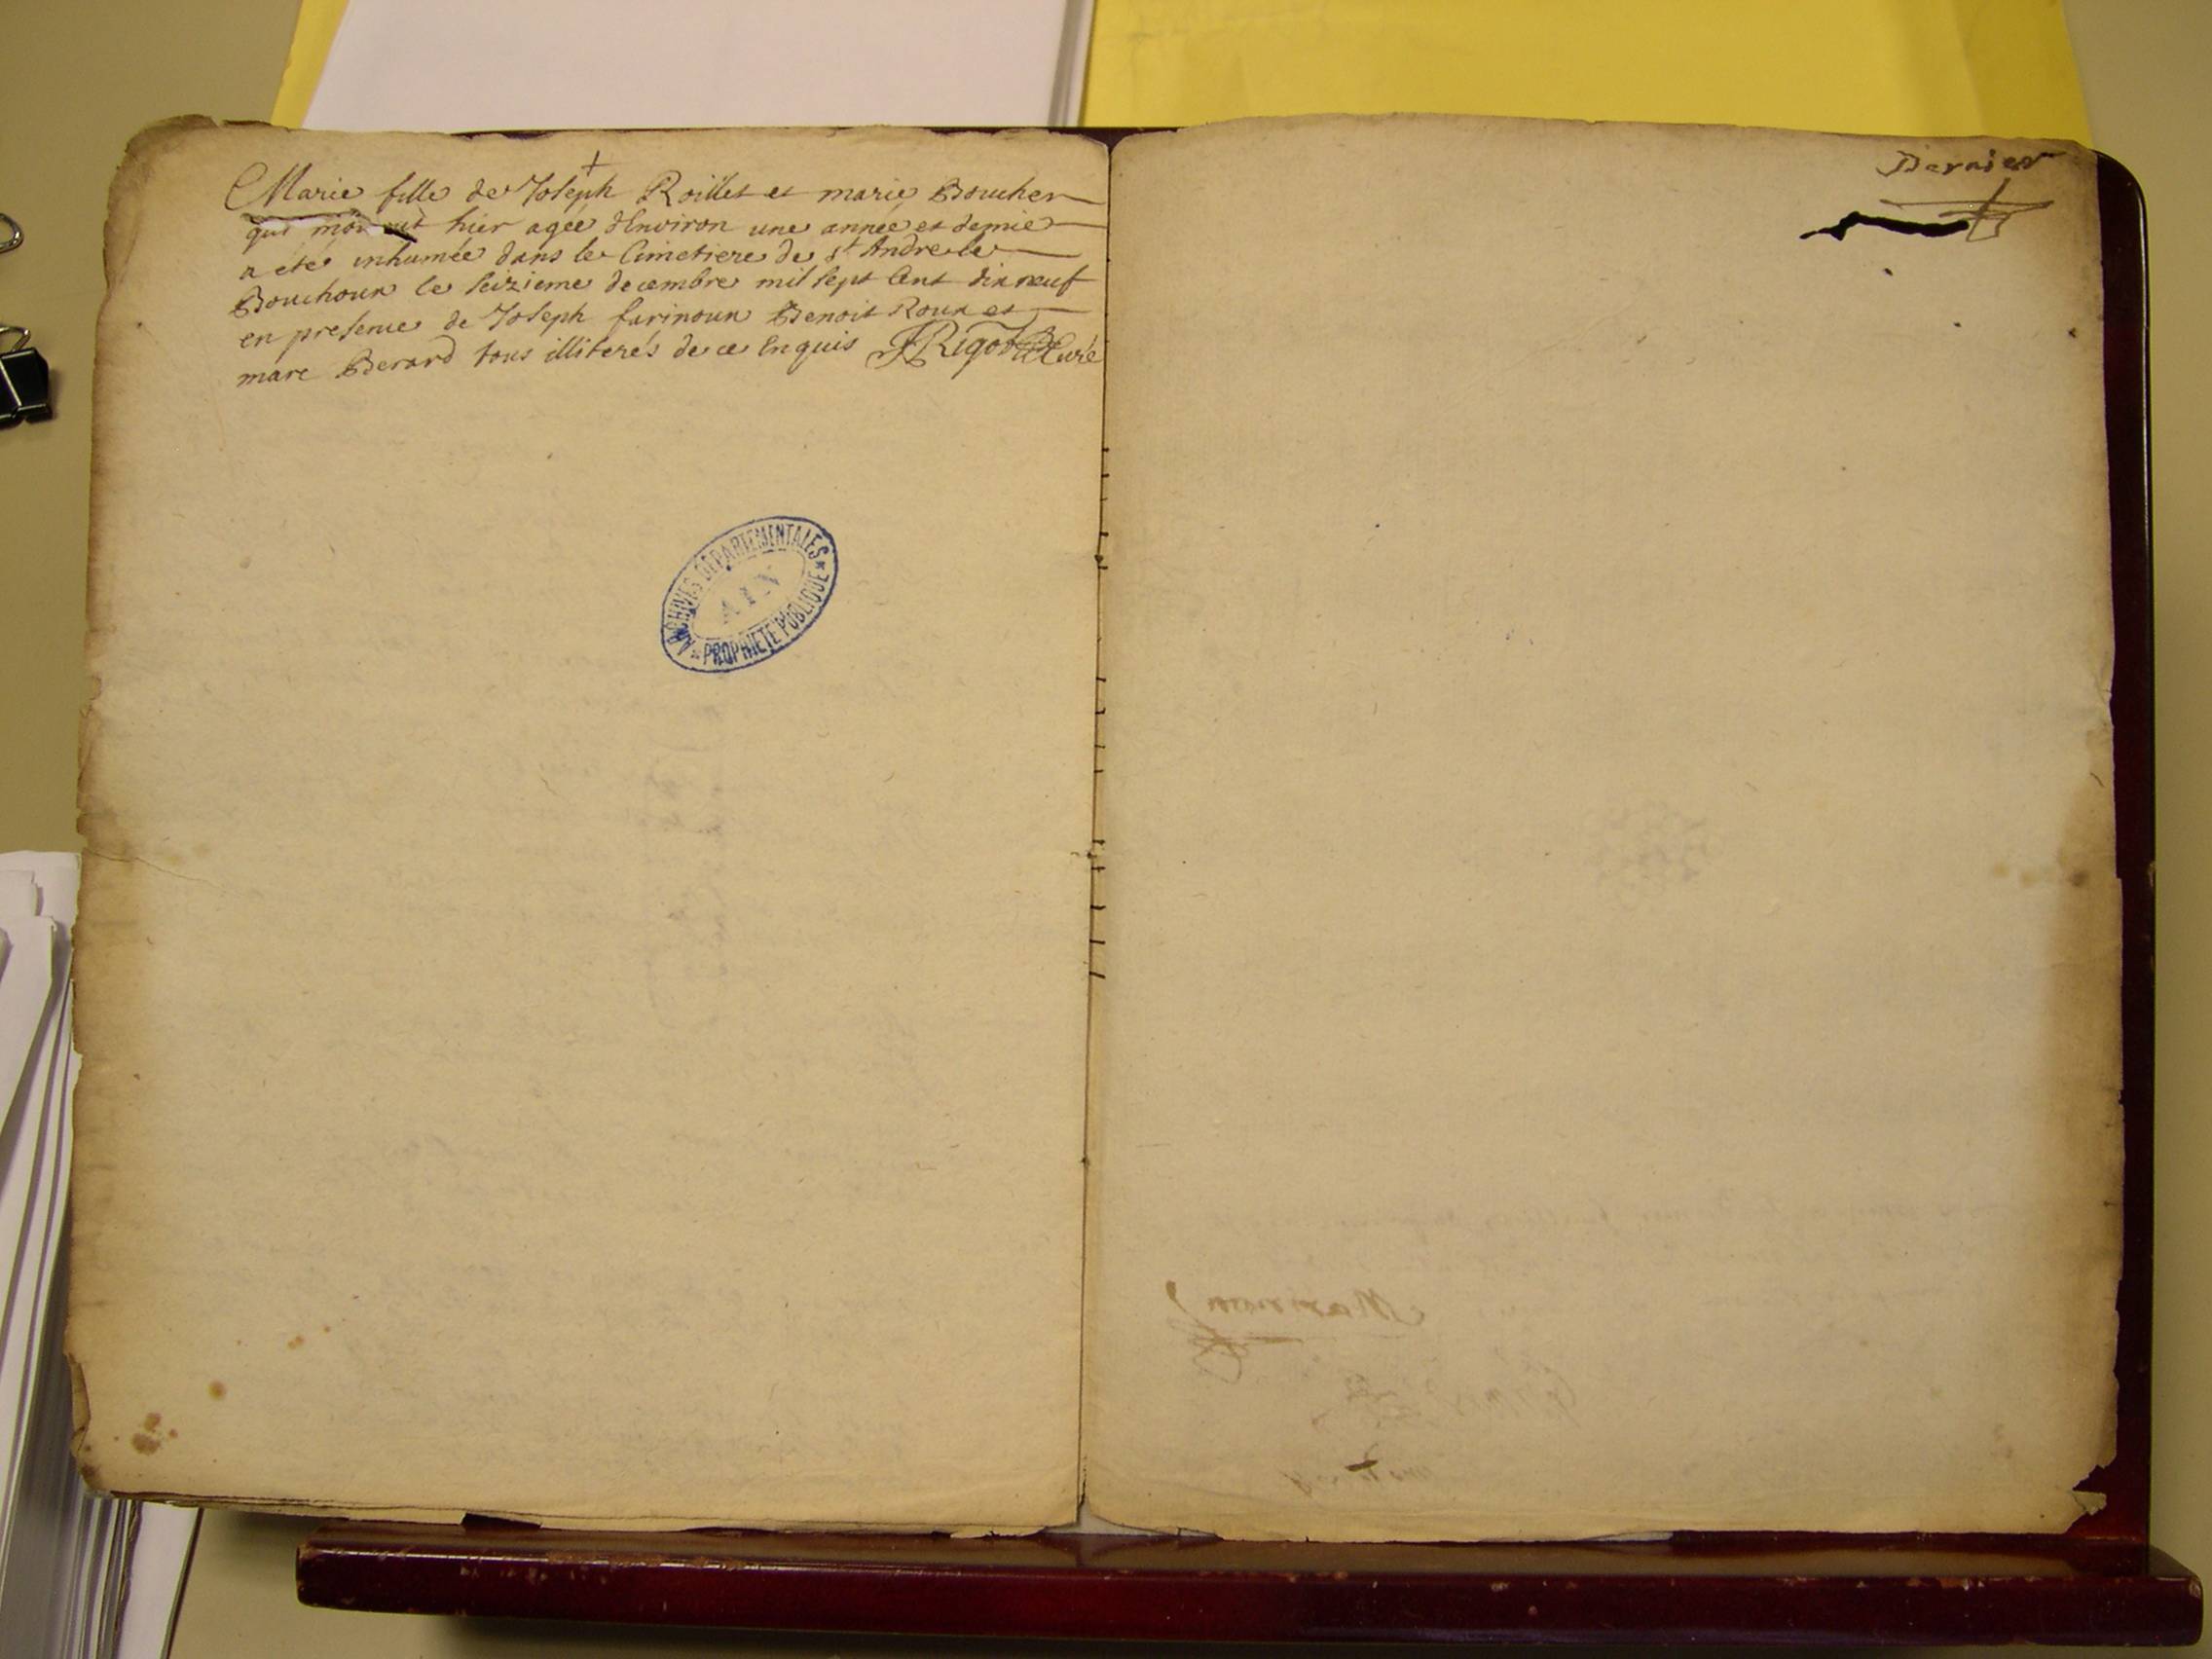 Marie fille de Joseph Roillet et marie Boucher
qui mourut hier agée dEnviron une année et demie
a été inhumée dans le Cimetiere de st Andre le
Bouchoux le seizieme decembre mil sept Cent dix neuf
en presence de Joseph farinoux Benoit Roux et
marc Berard tous illiterés de ce Enquis JRigot Curé
ARCHIVES DÉPARTEMENTALES
AIN
* PROPRIÉTÉ PUBLIQUE *
Dernier